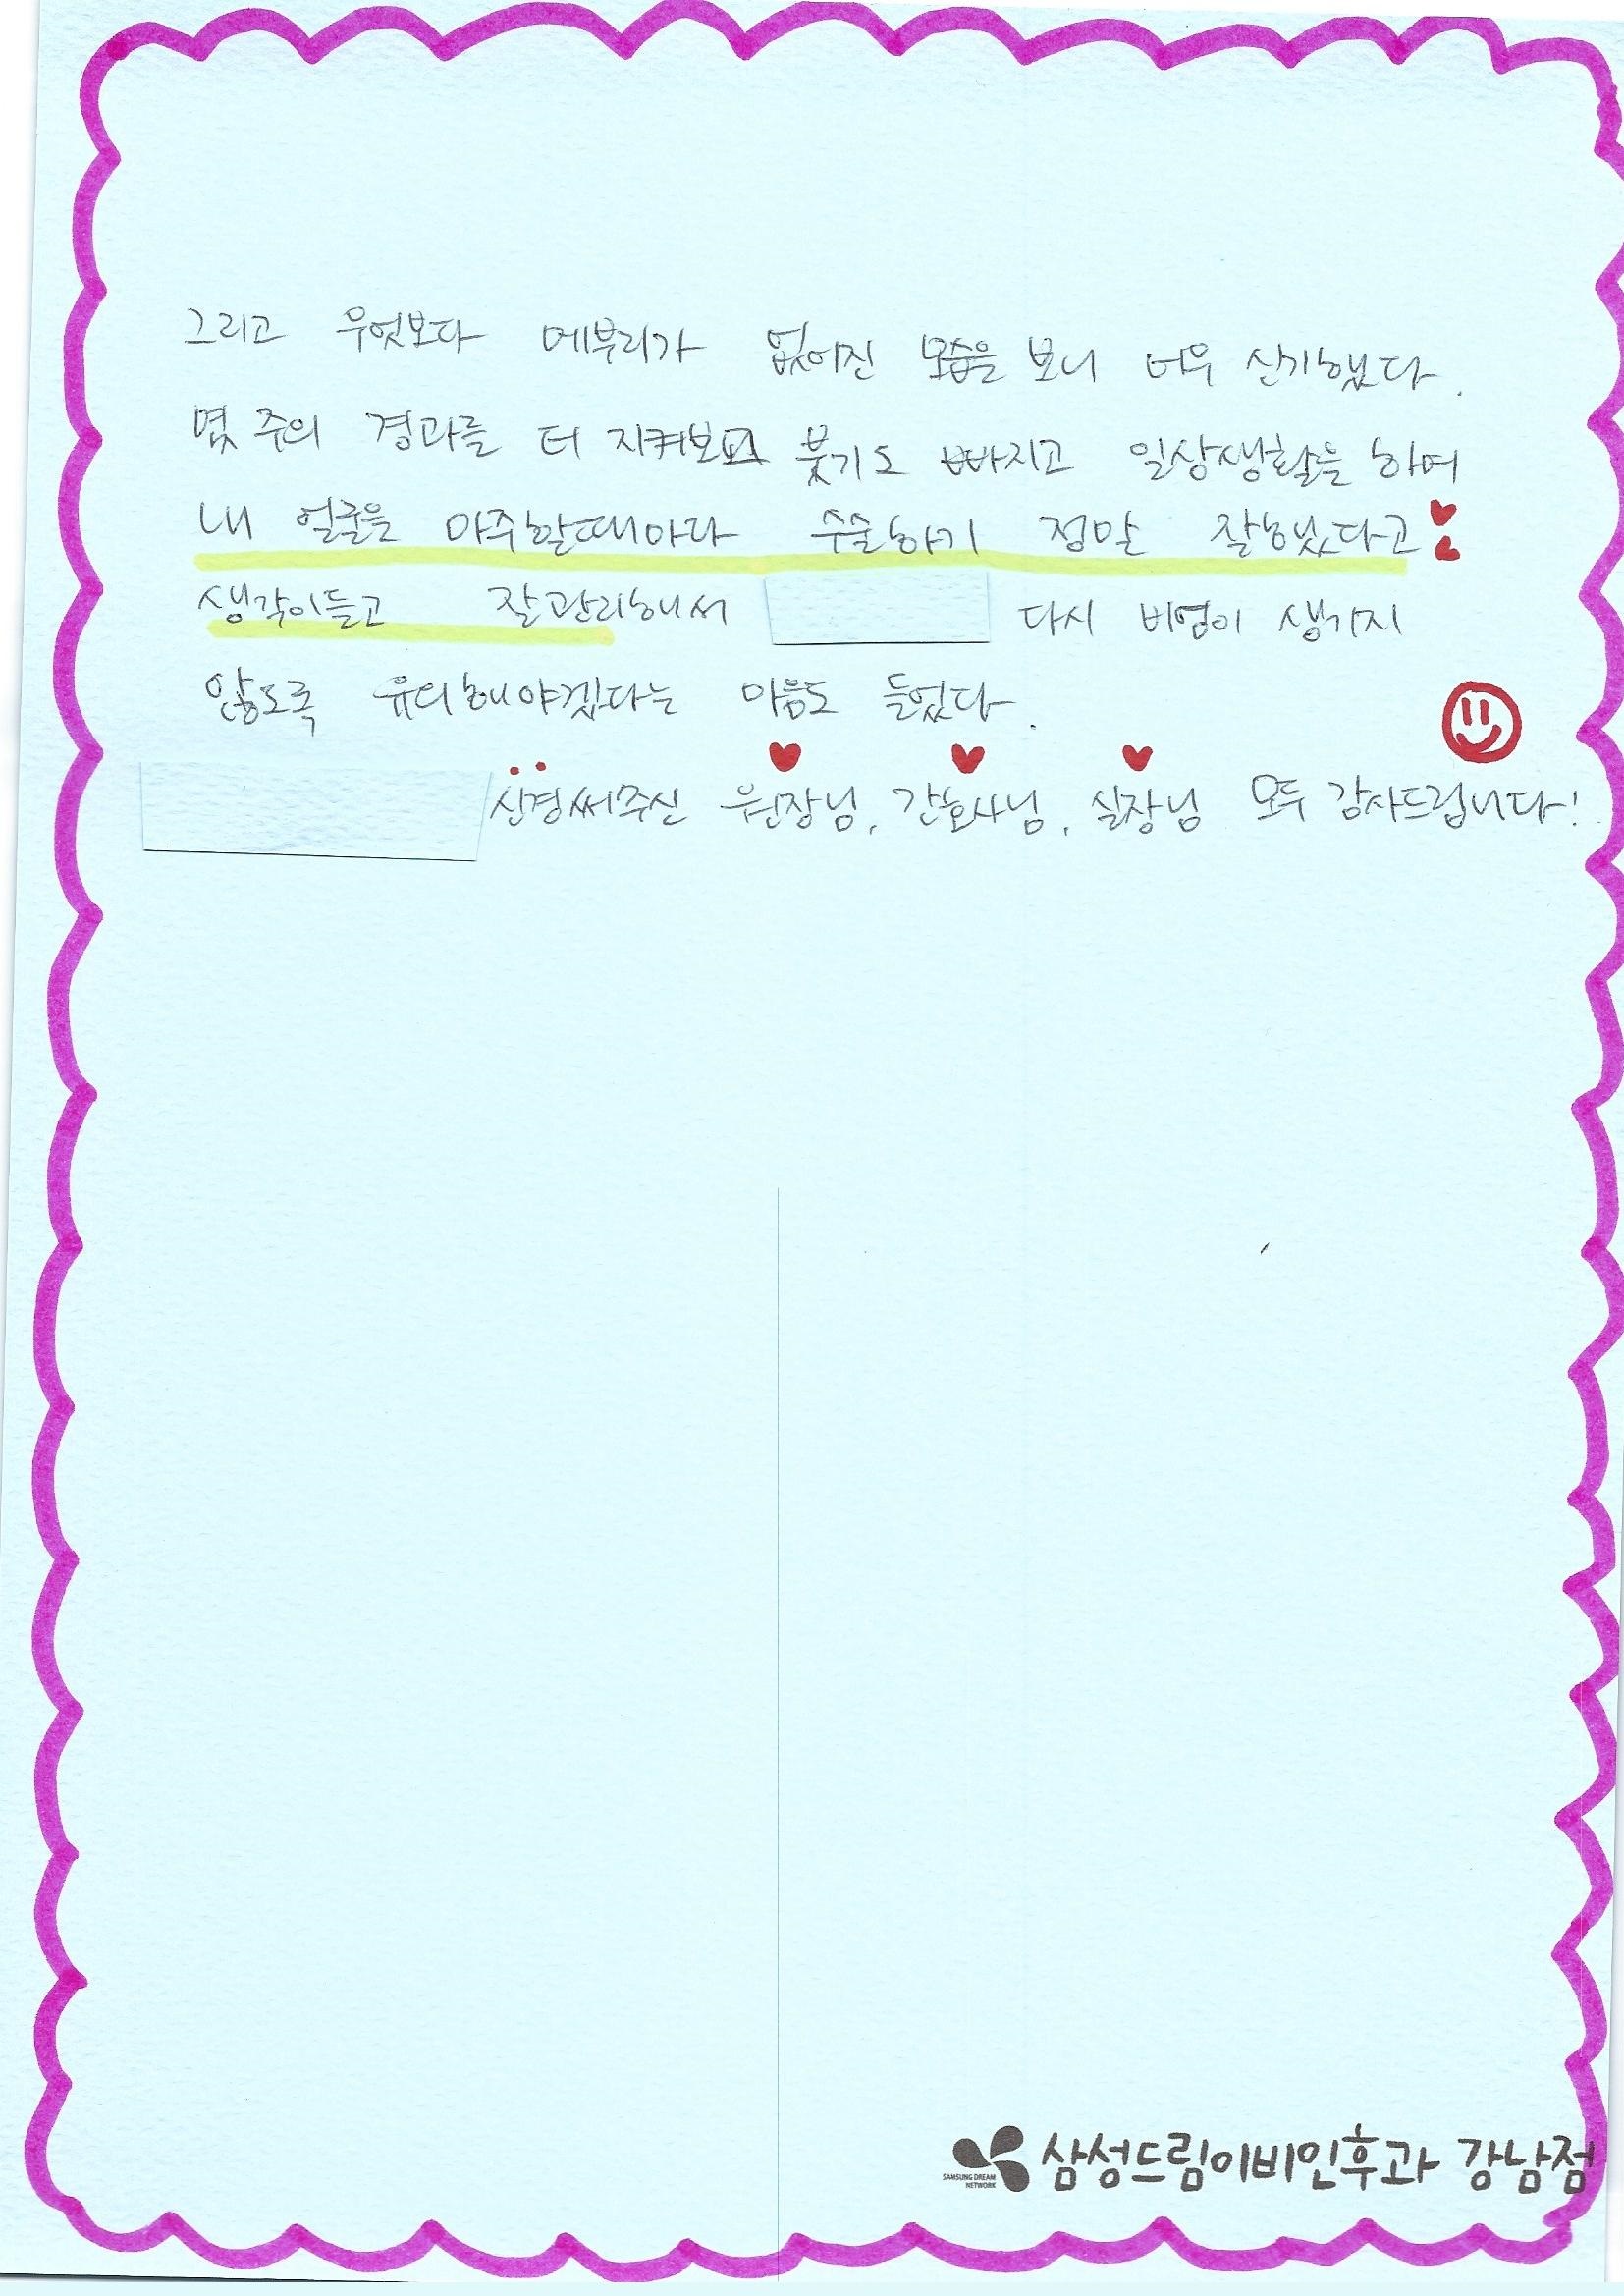 그리고 무엇보다 메부리가 없어진 모습을 보니 너무 신기했다.
몇 주의 경과를 더 지켜보고 붓기도 빠지고 일상생활을 하며
내 얼굴을 마주할때마다 수술하기 정말 잘했다고
생각이들고 잘관리해서 다시 비염이 생기지
않도록 유의해야겠다는 마음도 들었다.
신경써주신 원장님, 간호사님, 실장님 모두 감사드립니다!
SAMSUNG DREAM
NETWORK
삼성드림이비인후과 강남점